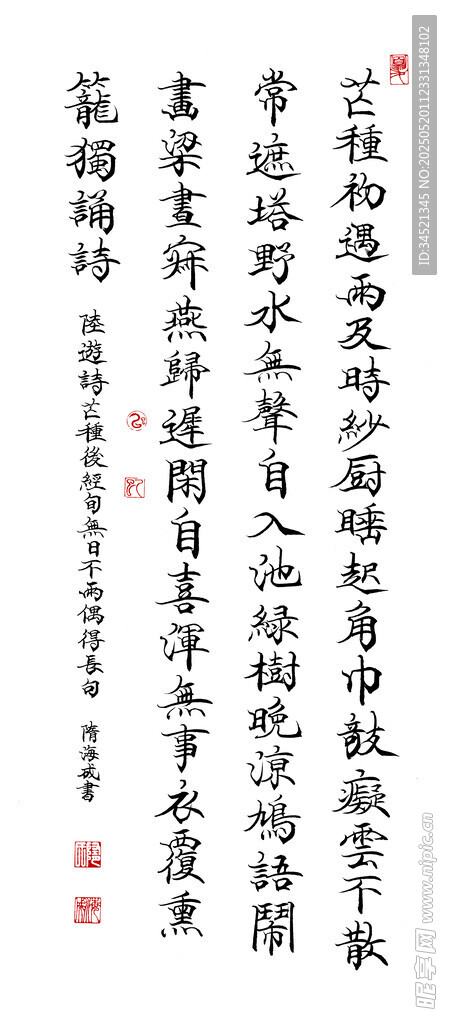 芒種初遇雨及時紗厨睡起角巾攲癡雲不散
常遮塔野水無聲自入池緑樹晚涼鳩語鬧
畫梁晝寂燕歸遲閑自喜渾無事衣覆熏
籠獨誦詩
陸遊詩芒種後經旬無日不雨偶得長句 隋海成書
ID:34521345 NO:20250520112331348102
昵享网 www.nipic.cn